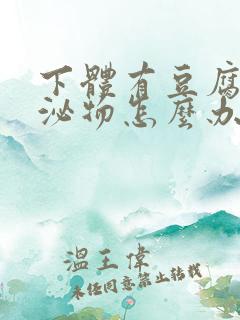 下體有豆腐
泌物怎麼办
溫王偉
未经同意禁止转载